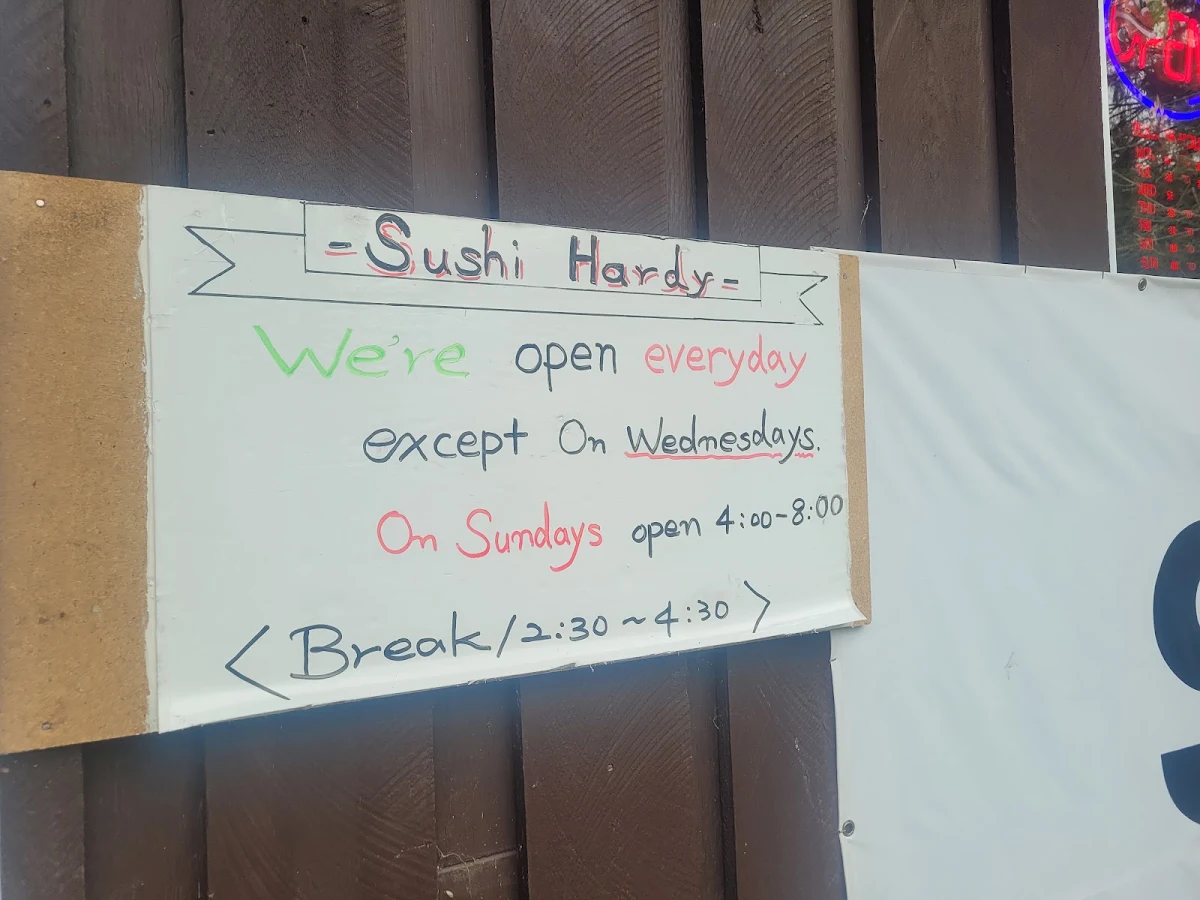 -Sushi Hardy-
We're open everyday
except On Wednesdays.
On Sundays open 4:00-8:00
< Break/2:30~4:30 >